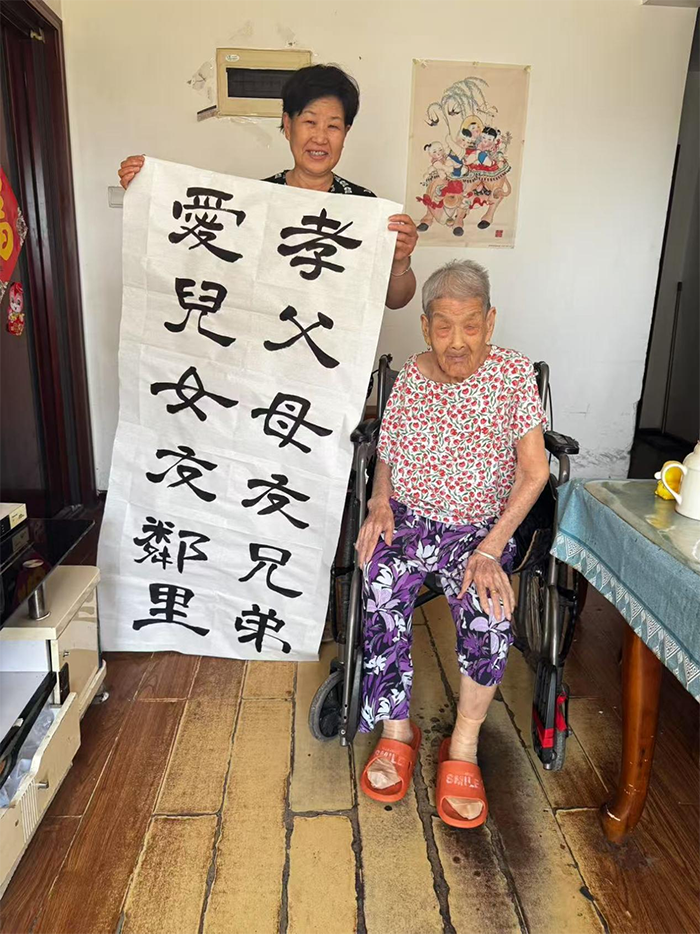 孝父母友兄弟
愛兒女友鄰里
SMILE
SMILE